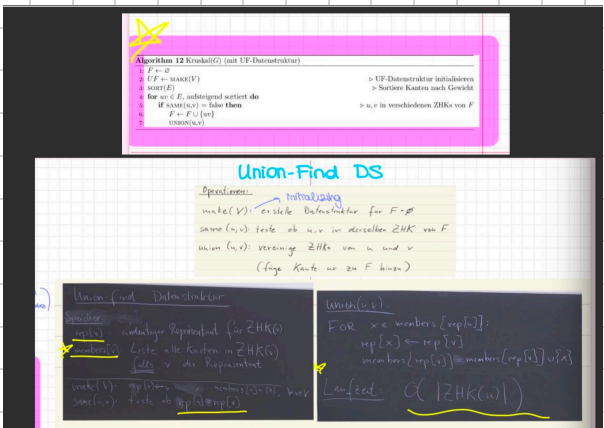 Algorithm 12 Kruskal(G) (mit UF-Datenstruktur)
1: F ← ∅
2: UF ← MAKE(V) ▷ UF-Datenstruktur initialisieren
3: SORT(E) ▷ Sortiere Kanten nach Gewicht
4: for uv ∈ E, aufsteigend sortiert do
5: if SAME(u,v) = false then ▷ u, v in verschiedenen ZHKs von F
6: F ← F ∪ {uv}
7: UNION(u,v)
Union-Find DS
Operationen:
initializing
make(V): erstelle Datenstruktur für F = ∅
same(u,v): teste ob u,v in derselben ZHK von F
union(u,v): vereinige ZHKs von u und v
(füge Kante uv zu F hinzu)
Union-Find Datenstruktur
Speicher
rep[v] eindeutiger Repräsentant für ZHK(v)
members[v] Liste alle Knoten in ZHK(v)
falls v der Repräsentant
make(V): rep[v] ← v members[v]
same(u,v): teste ob rep[u] = rep[v]
union(u,v):
FOR x ∈ members[rep[u]]:
rep[x] ← rep[v]
members[rep[v]] = members[rep[v]] ∪ {x}
Laufzeit: O(|ZHK(u)|)